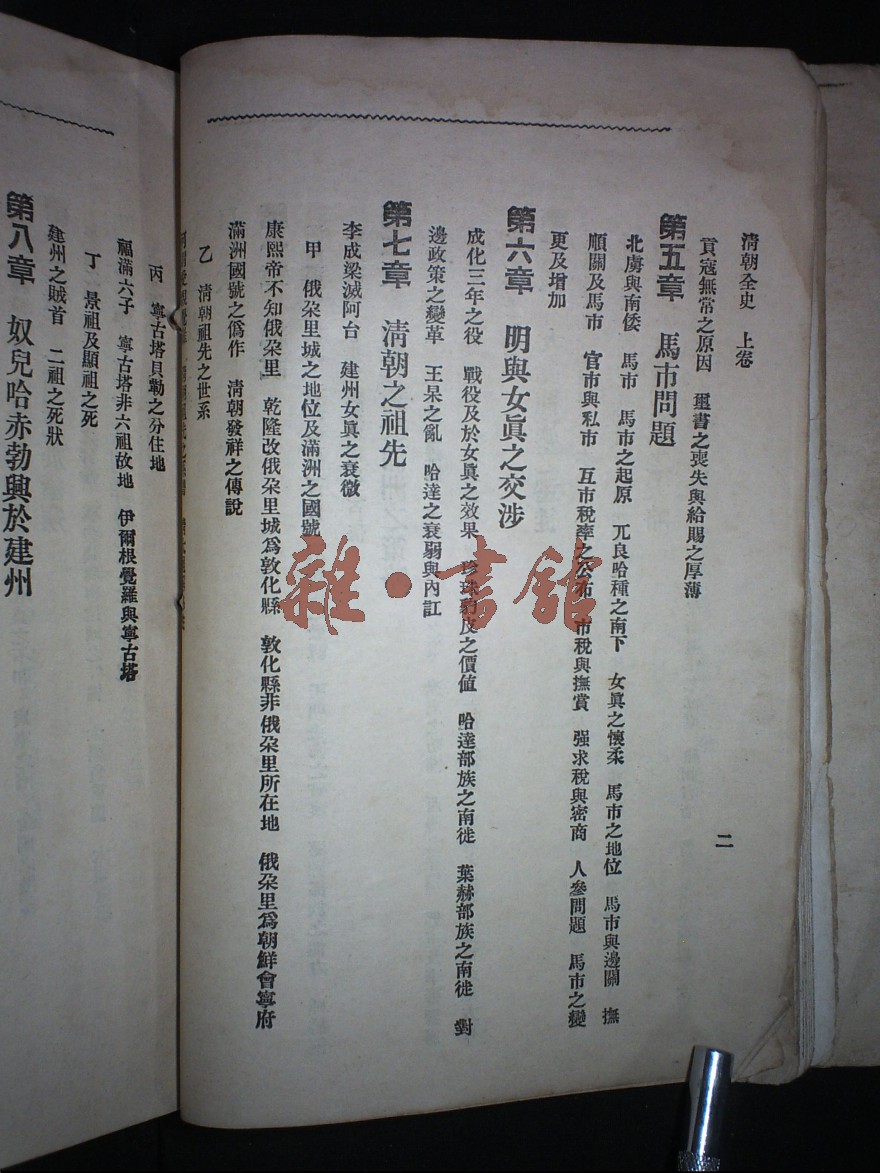 清朝全史　上卷
二
貢寇無常之原因　璽書之喪失與給賜之厚薄
第五章　馬市問題
北虜與南倭　馬市　馬市之起原　兀良哈種之南下　女眞之懷柔　馬市之地位　馬市與邊關　撫
順關及馬市　官市與私市　互市稅率之公布　市稅與撫賞　强求稅與密商　人參問題　馬市之變
更及增加
第六章　明與女眞之交涉
成化三年之役　戰役及於女眞之效果　珍珠豹皮之價値　哈達部族之南徙　葉赫部族之南徙　對
邊政策之變革　王杲之亂　哈達之衰弱與內訌
第七章　淸朝之祖先
李成梁滅阿台　建州女眞之衰微
甲　俄朶里城之地位及滿洲之國號
康熙帝不知俄朶里　乾隆改俄朶里城爲敦化縣　敦化縣非俄朶里所在地　俄朶里爲朝鮮會寧府
滿洲國號之僞作　淸朝發祥之傳說
乙　淸朝祖先之世系
丙　寧古塔貝勒之分住地
福滿六子　寧古塔非六祖故地　伊爾根覺羅與寧古塔
丁　景祖及顯祖之死
建州之賊首　二祖之死狀
第八章　奴兒哈赤勃興於建州
雜·書館